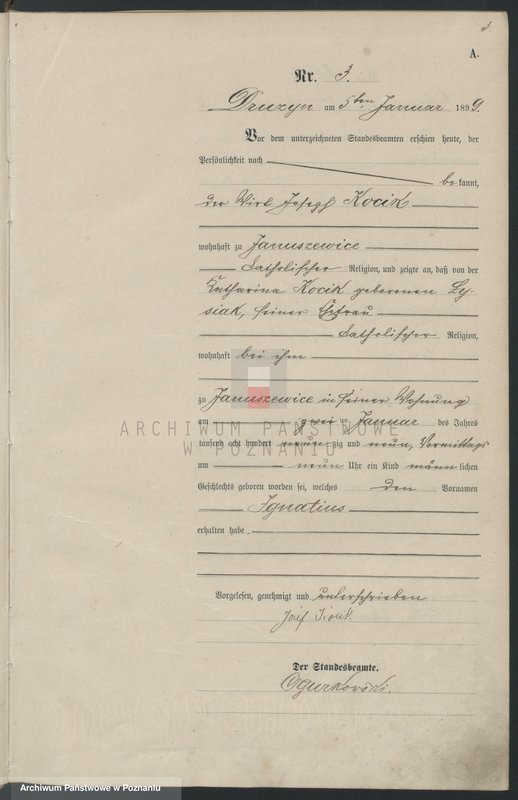 3
A.
Nr. 3.
Druzyn am 5ten Januar 1899.
Vor dem unterzeichneten Standesbeamten erschien heute, der
Persönlichkeit nach
be kannt,
der Wirt Joseph Kocik
wohnhaft zu Januszewice
katholischer Religion, und zeigte an, daß von der
Katharina Kocik geborenen Ly-
siak, seiner Ehefrau
katholischer Religion,
wohnhaft bei ihm
zu Januszewice in seiner Wohnung
am zwei ten Januar des Jahres
tausend acht hundert neun zig und neun, Vormittags
um neun Uhr ein Kind männ lichen
Geschlechts geboren worden sei, welches den Vornamen
Ignatius
erhalten habe.
Vorgelesen, genehmigt und unterschrieben
Józef
Der Standesbeamte.
Ogurkowski.
ARCHIWUM PAŃSTWOWE
W POZNANIU
Archiwum Państwowe w Poznaniu